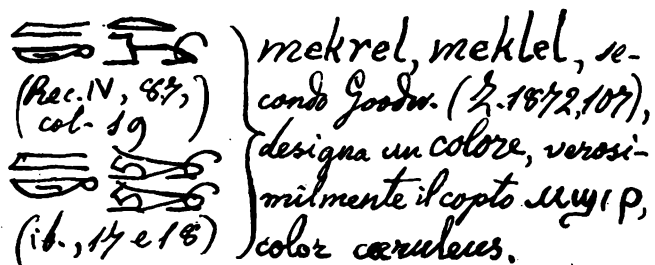 (Rec. IV, 87,
col- 19)
(ib., 17 e 18)
mekrel, meklel, se-
condo Goodw. (Z. 1872, 107),
designa un colore, verosi-
milmente il copto ⲙϣⲓⲣ,
color cæruleus.